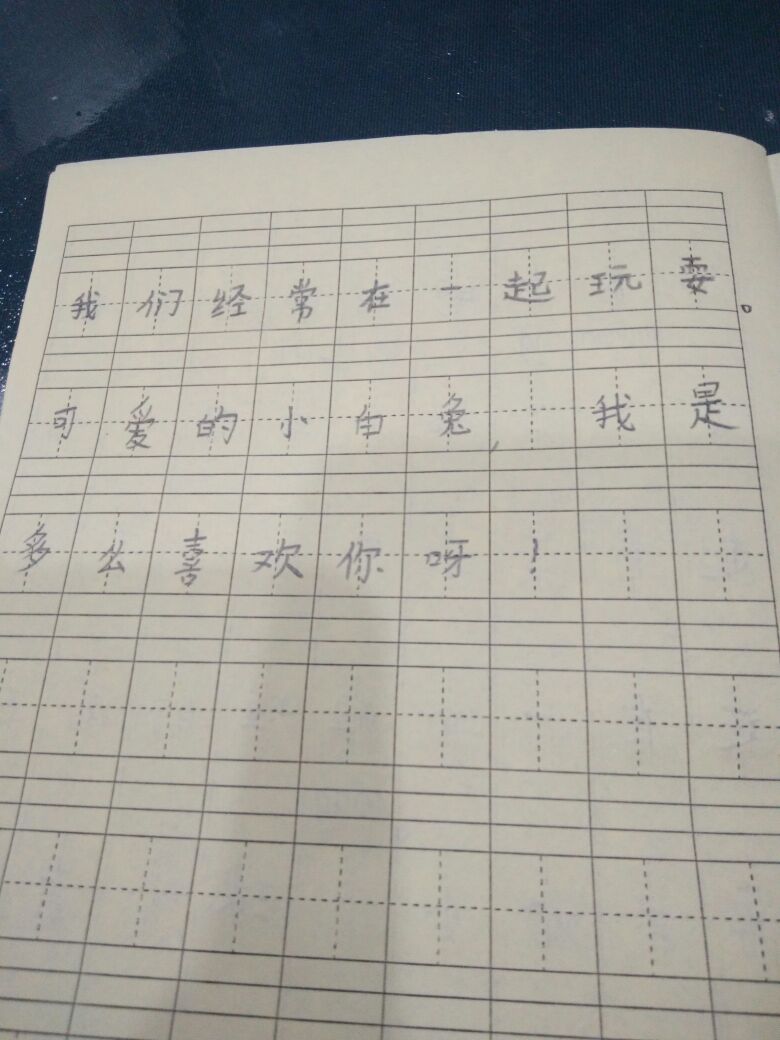 我们经常在一起玩耍。
可爱的小白兔，我是
多么喜欢你呀！